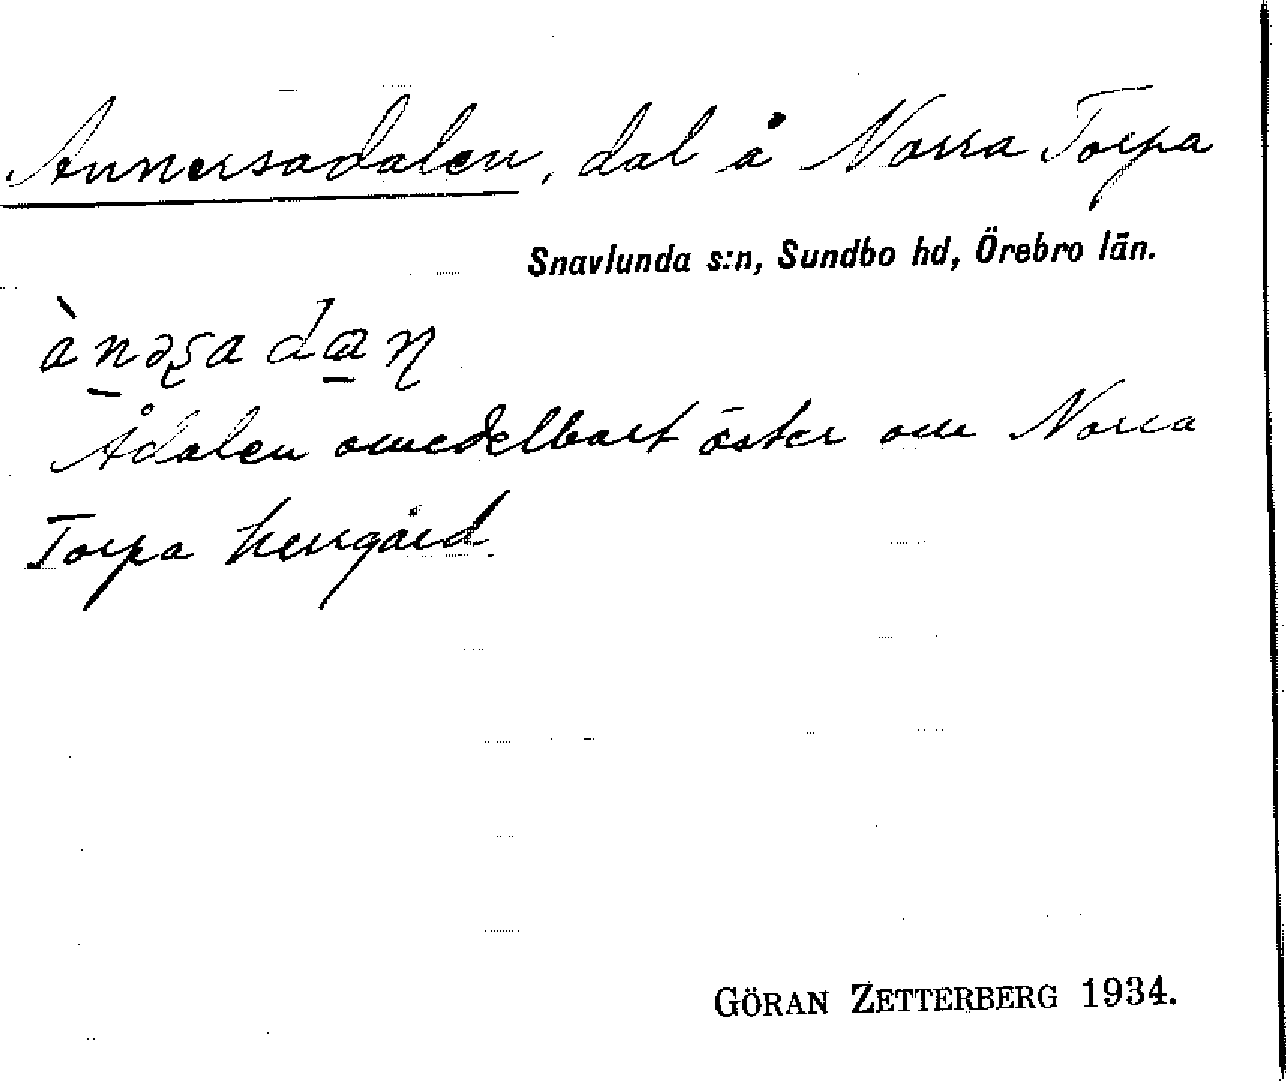 Annersadalen, dal å Norra Torpa
Snavlunda s:n, Sundbo hd, Örebro län.
ànəʂadan
Ådalen omedelbart öster om Norra
Torpa herrgård.
GÖRAN ZETTERBERG 1934.